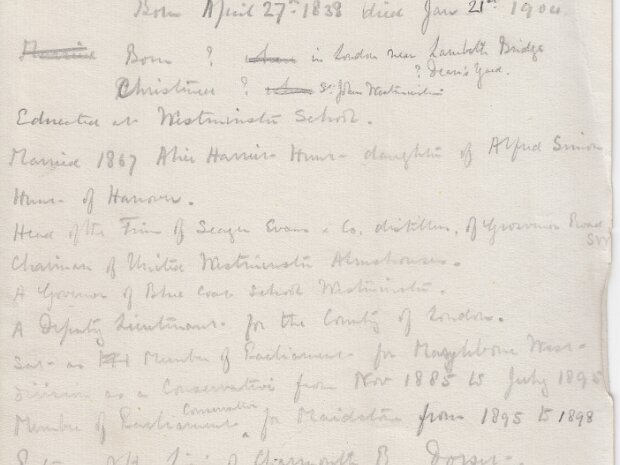 Born April 27th 1838 died Jan 21st 1904.
Married Born ? when in London near Lambeth Bridge
? Dean's Yard.
Christened ? when St. John Westminster
Educated at Westminster School.
Married 1867 Alice Harriet Hunt daughter of Alfred Simon
Hunt of Hanover.
Head of the Firm of Seager Evans & Co. distillers, of Grosvenor Road
SW
Chairman of United Westminster Almshouses.
A Governor of Blue Coat School Westminster.
A Deputy Lieutenant for the County of London.
Sat as Member of Parliament for Marylebone West
division as a Conservative from Nov 1885 to July 1895
Conservative
Member of Parliament for Maidstone from 1895 to 1898
of Charmouth Dorset.